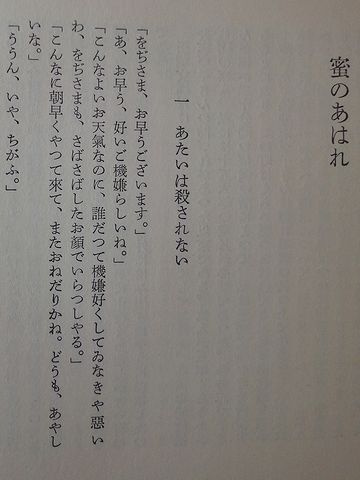 蜜のあはれ
一　あたいは殺されない
「をぢさま、お早うございます。」
「あ、お早う、好いご機嫌らしいね。」
「こんなよいお天氣なのに、誰だつて機嫌好くしてゐなきや惡い
わ、をぢさまも、さばさばしたお顔でいらつしやる。」
「こんなに朝早くやつて來て、またおねだりかね。どうも、あやし
いな。」
「ううん、いや、ちがふ。」